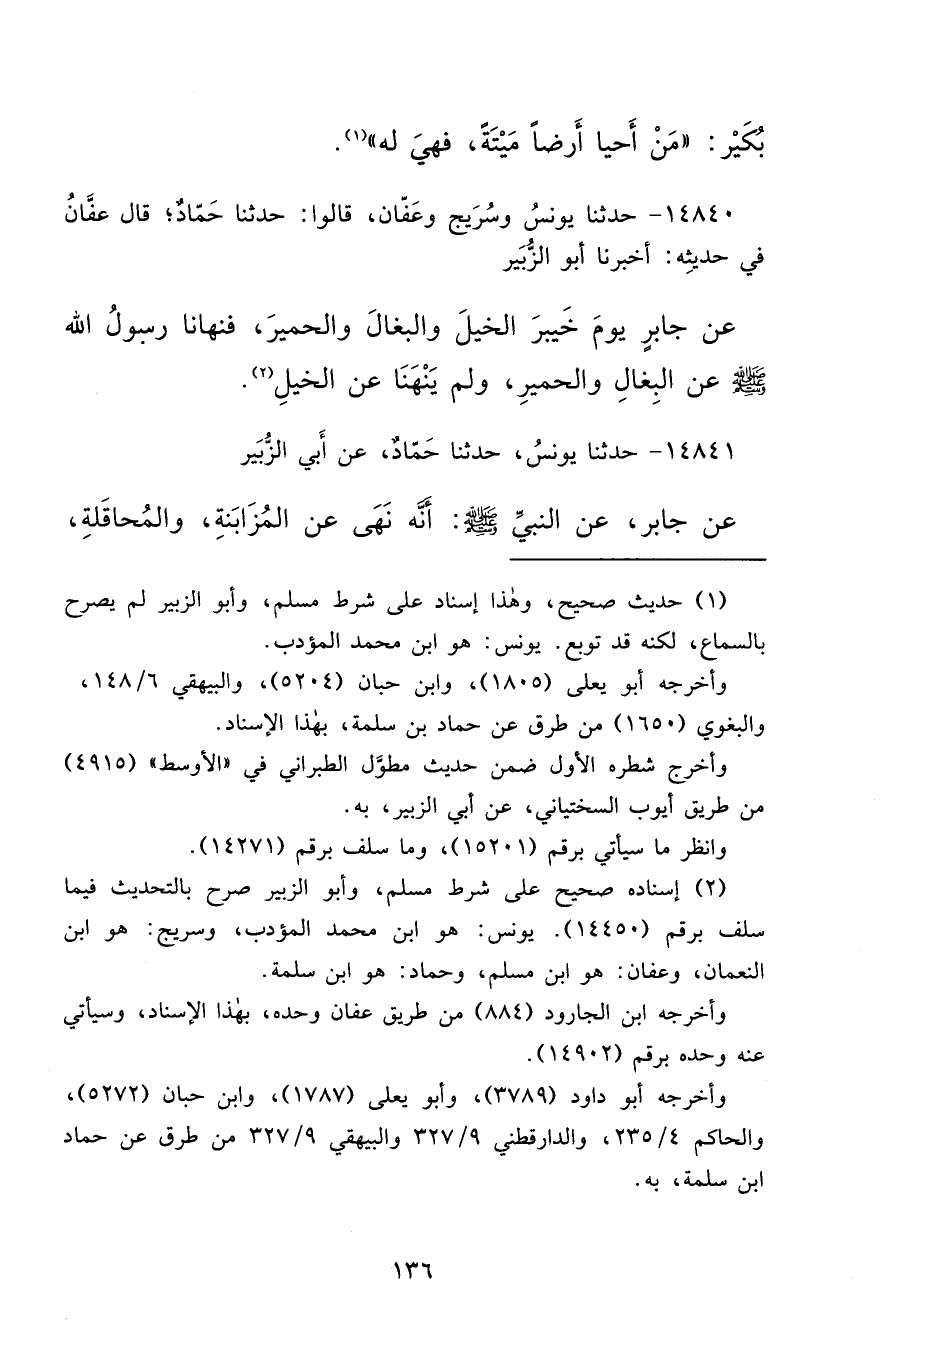 بُكَيْر: «مَنْ أَحيا أَرضاً مَيْتَةً، فهيَ له»(١).
١٤٨٤٠- حدثنا يونسُ وسُرَيج وعَفّان، قالوا: حدثنا حَمّادٌ؛ قال عفَّانُ
في حديثِه: أخبرنا أبو الزُّبَير
عن جابرٍ يومَ خَيبرَ الخيلَ والبغالَ والحميرَ، فنهانا رسولُ الله
ﷺ عن البِغالِ والحميرِ، ولم يَنْهَنَا عن الخيلِ(٢).
١٤٨٤١- حدثنا يونسُ، حدثنا حَمّادٌ، عن أَبي الزُّبَير
عن جابر، عن النبيِّ ﷺ: أَنَّه نَهَى عن المُزَابَنةِ، والمُحاقَلةِ،
(١) حديث صحيح، وهٰذا إسناد على شرط مسلم، وأبو الزبير لم يصرح
بالسماع، لكنه قد توبع. يونس: هو ابن محمد المؤدب.
وأخرجه أبو يعلى (١٨٠٥)، وابن حبان (٥٢٠٤)، والبيهقي ١٤٨/٦،
والبغوي (١٦٥٠) من طرق عن حماد بن سلمة، بهٰذا الإسناد.
وأخرج شطره الأول ضمن حديث مطوَّل الطبراني في «الأوسط» (٤٩١٥)
من طريق أيوب السختياني، عن أبي الزبير، به.
وانظر ما سيأتي برقم (١٥٢٠١)، وما سلف برقم (١٤٢٧١).
(٢) إسناده صحيح على شرط مسلم، وأبو الزبير صرح بالتحديث فيما
سلف برقم (١٤٤٥٠). يونس: هو ابن محمد المؤدب، وسريج: هو ابن
النعمان، وعفان: هو ابن مسلم، وحماد: هو ابن سلمة.
وأخرجه ابن الجارود (٨٨٤) من طريق عفان وحده، بهٰذا الإسناد، وسيأتي
عنه وحده برقم (١٤٩٠٢).
وأخرجه أبو داود (٣٧٨٩)، وأبو يعلى (١٧٨٧)، وابن حبان (٥٢٧٢)،
والحاكم ٢٣٥/٤، والدارقطني ٣٢٧/٩ والبيهقي ٣٢٧/٩ من طرق عن حماد
ابن سلمة، به.
١٣٦